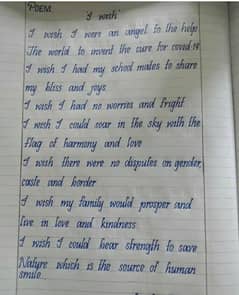 POEM
'I wish'
I wish I were an angel to the help
The world to invent the cure for covid-19
I wish I had my school mates to share
my bliss and joys
I wish I had no worries and fright
I wish I could soar in the sky with the
flag of harmony and love
I wish there were no disputes on gender,
caste and border
I wish my family would prosper and
live in love and kindness
I wish I could bear strength to save
Nature which is the source of human
smile...